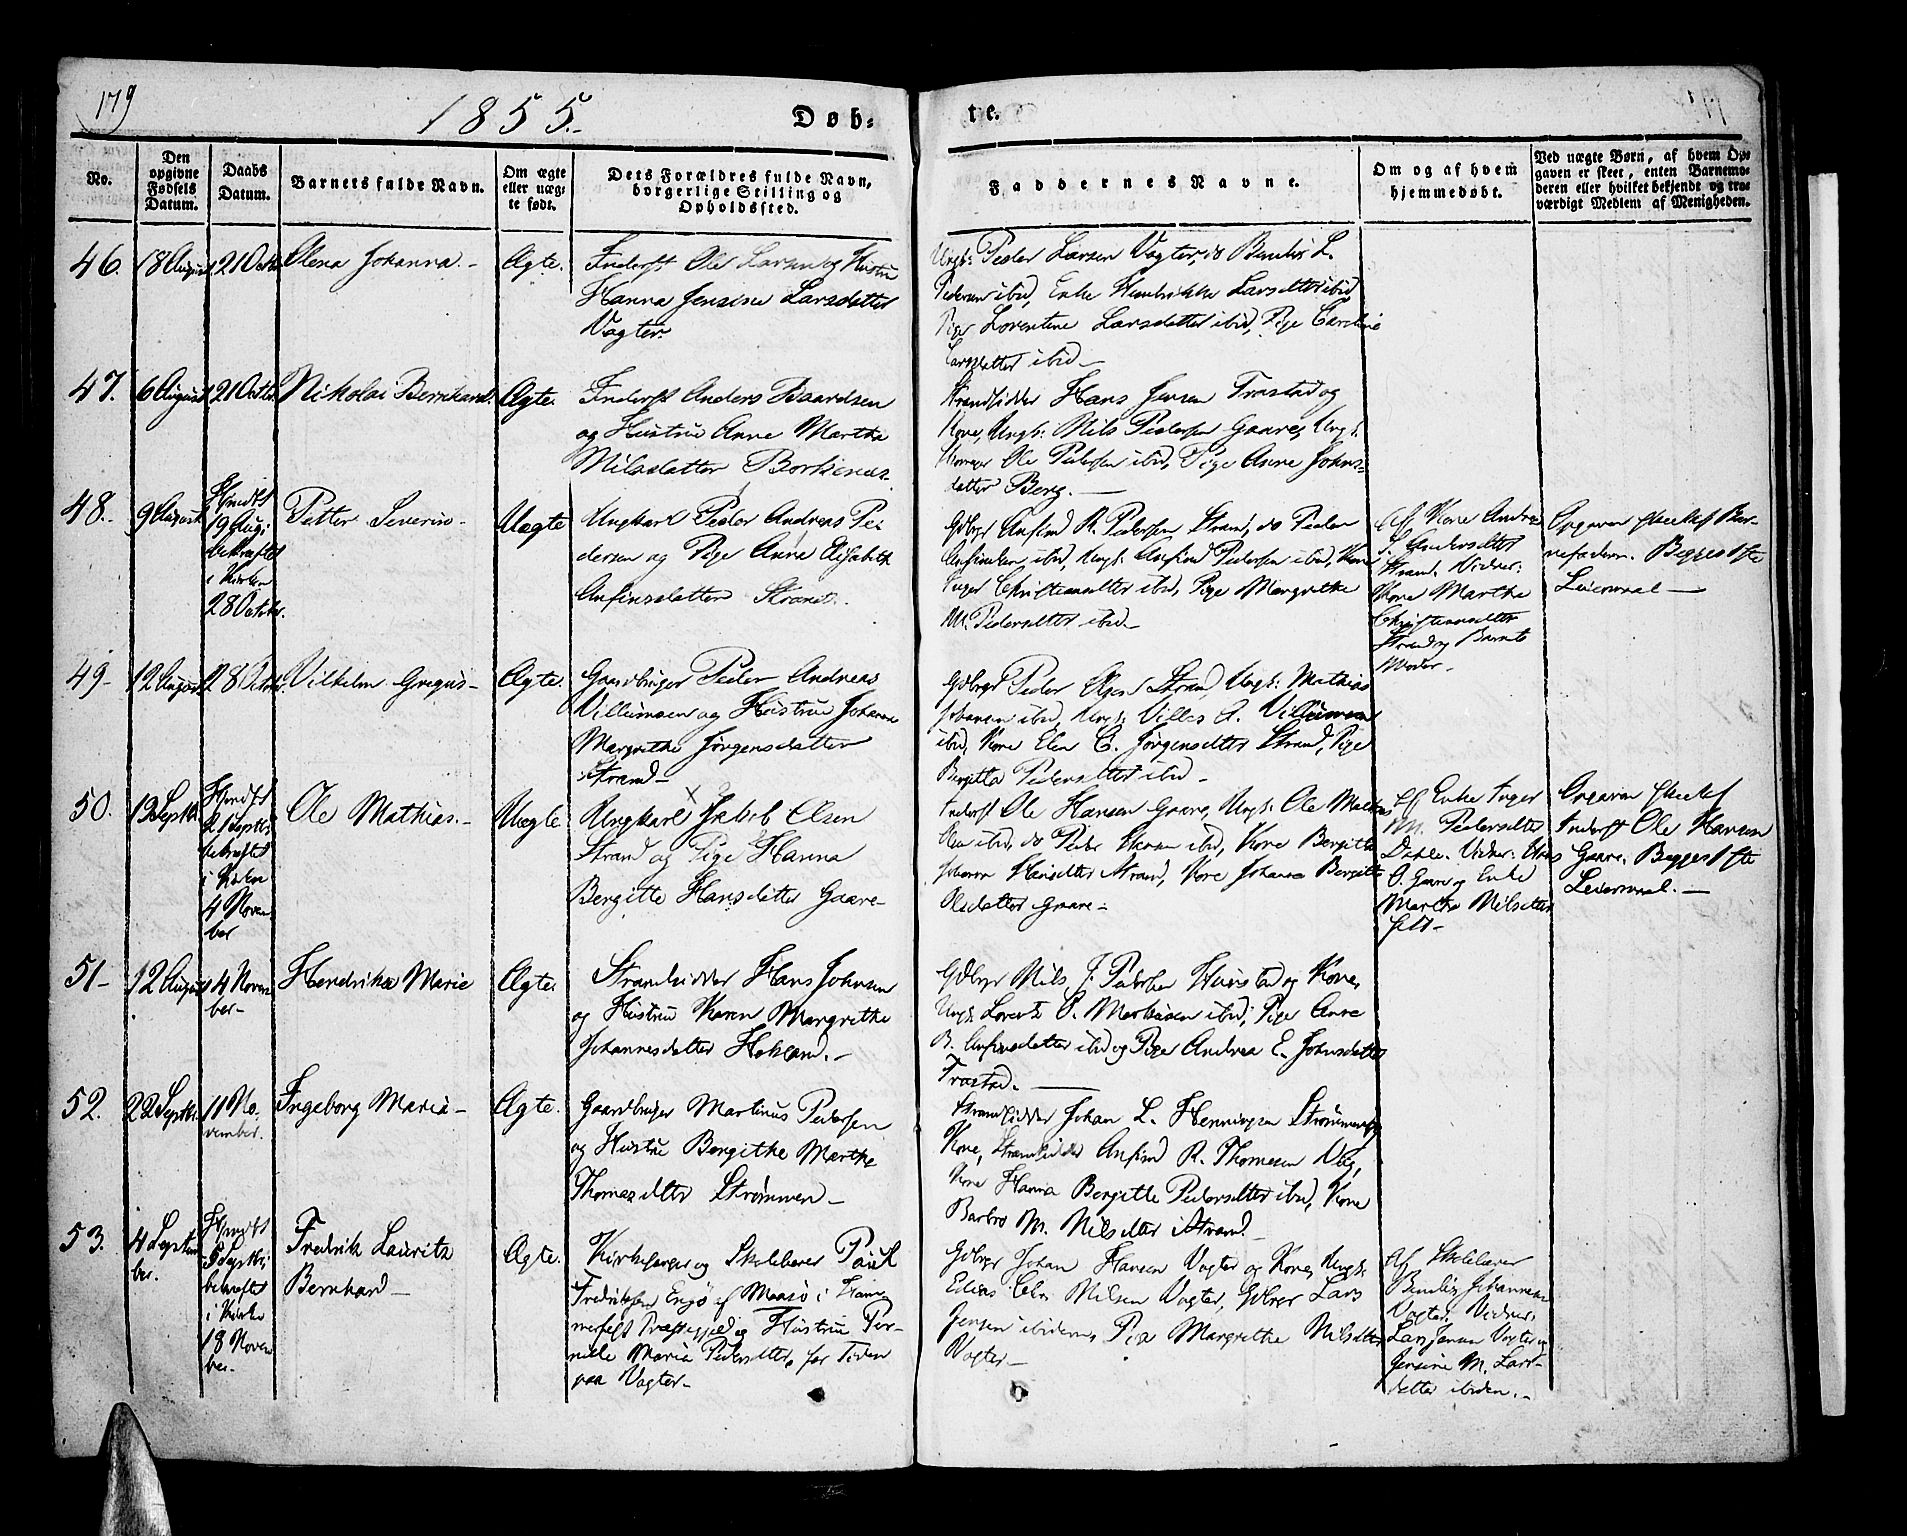 179
1855.
Døb-
te.
No.
Den opgivne Fødsels Datum.
Daabs Datum.
Barnets fulde Navn.
Om ægte eller uæg-te født.
Dets Forældres fulde Navn, borgerlige Stilling og Opholdssted.
Faddernes Navne.
Om og af hvem hjemmedøbt.
Ved uægte Børn, af hvem Op-gaven er skeet, enten Barnemo-deren eller hvilket bekjendt og tro-værdigt Medlem af Menigheden.
46.
18 August
21 Octbr
Olena Johanna.-
Ægte.
Inderst Ole Larsen og Hustru
Hanna Jensine Larsdatter
Vagter.
Ungk: Peder Larsen Vagter, do
Pedersen ibid, Enke Hendrikke Larsdtter ibid,
Pige Lorentine Larsdatter ibid, Pige Caroline
Larsdatter ibid -
47.
6 August
21 Octbr.
Nikolai Bernhard.
Ægte.
Inderst Anders Baardsen
og Hustru Anne Martha
Nilsdatter Borkenæs.
Strandsidder Hans Jensen Trastad og
Kone, Ungk: Nils Pedersen Gaare, Ungk:
Ole Pedersen ibid, Pige Anne Johns-
datter Berg. -
48.
9 August
Hjmdbt
19 Aug:
bekræftet
i Kirken
28 Octbr.
Petter Severin -
Uægte
Ungkarl Peder Andreas Pe-
dersen og Pige Anne Elisabeth
Anfinsdatter Strand.
Gdbrgr Anfind R. Pedersen Strand, do Peder
Anfindsen ibid, Ungk: Anfind Pedersen ibid, Kone
Inger Christiansdtter ibid, Pige Margrethe
M. Pedersdtter ibid -
Af Kone Andrea
Andersdtter
Strand. Vidner:
Kone Martha
Christiansdtter
Strand og Barnets
Moder -
Opgaven skeet af Bar-
nefaderen. Begges 1ste
Leiermaal -
49 -
12 August
28 Octbr.
Vilhelm Gregus -
Ægte.
Gaardbruger Peder Andreas
Villumsen og Hustru Johanna
Margrethe Jørgensdatter
Strand -
Gdbrgr Peder Strand, Ungk: Mathias
Johansen ibid, Ungk: Villas A. Villumsen
ibid, Kone Elen C. Jørgensdtter Strand, Pige
Bergitta Pedersdtter ibid -
50.
13 Septbr
Hjmdbt
21 Septbr:
bekræftet
i Kirken
4 Novem
ber
Ole Mathias. -
Uægte.
Ungkarl Jakob Olsen
Strand og Pige Hanna
Bergitte Hansdatter Gaare -
Inderst Ole Hansen Gaare, Ungk: Ole Mathias
Olsen ibid, do Peder Hansen ibid, Kone Bergitte
Johanna Hansdtter Strand, Kone Johanna Bergitte
Olsdatter Gaare -
Af Enke Inger
M. Pedersdtter
Dahle. Vidner:
O. Gaare og Enke
Martha Nilsdtter
Opgaven skeet af
Inderst Ole Hansen
Gaare. Begges 1ste
Leiermaal. -
51 -
12 August
4 Novem
ber -
Hendrika Marie
Ægte.
Strandsidder Hans Johnsen
og Hustru Karen Margrethe
Johannesdatter Hokland. -
Gdbrgr Nils J. Pedersen Hunstad og Kone,
Ungk: Lorents P. Markusen ibid, Pige Anne
B. Anfinsdatter ibid og Pige Andrea E. Johnsdatter
Trastad. -
52.
22 Septbr.
11 No-
vember.
Ingeborg Maria -
Ægte.
Gaardbruger Martinus Pedersen
og Hustru Bergithe Marthe
Thomasdtter Strømmen -
Strandsidder Johan L. Henningsen Strømmen og
Kone, Strandsidder Anfind R. Thomesen Vig,
Kone Hanna Bergitte Pedersdtter ibid, Kone
Barbro M. Nilsdtter Strand -
53.
4 Septem
ber.
Hjmdbt
5 Septbr:
bekræftet
i Kirke
18 Novem
ber.
Fredrik Lauritz
Bernhard -
Ægte.
Kirkesanger og Skolelærer Paul
Fredriksen Engø af Maasø i Ham-
merfest Præstegjeld og Hustru Per-
nille Maria Pedersdtter, for Tiden
paa Vagter -
Gdbrgr Johan Hansen Vagter og Kone, Ungk:
Edias Chr. Nilsen Vagter, Gdbrgr Lars
Jensen ibidem, Pige Margrethe Nilsdtter
Vagter -
Af Skolelærer
Johannesen
Vagter. Vidner:
Lars Jensen Vagter og
Jensine M. Lars-
datter ibidem. -